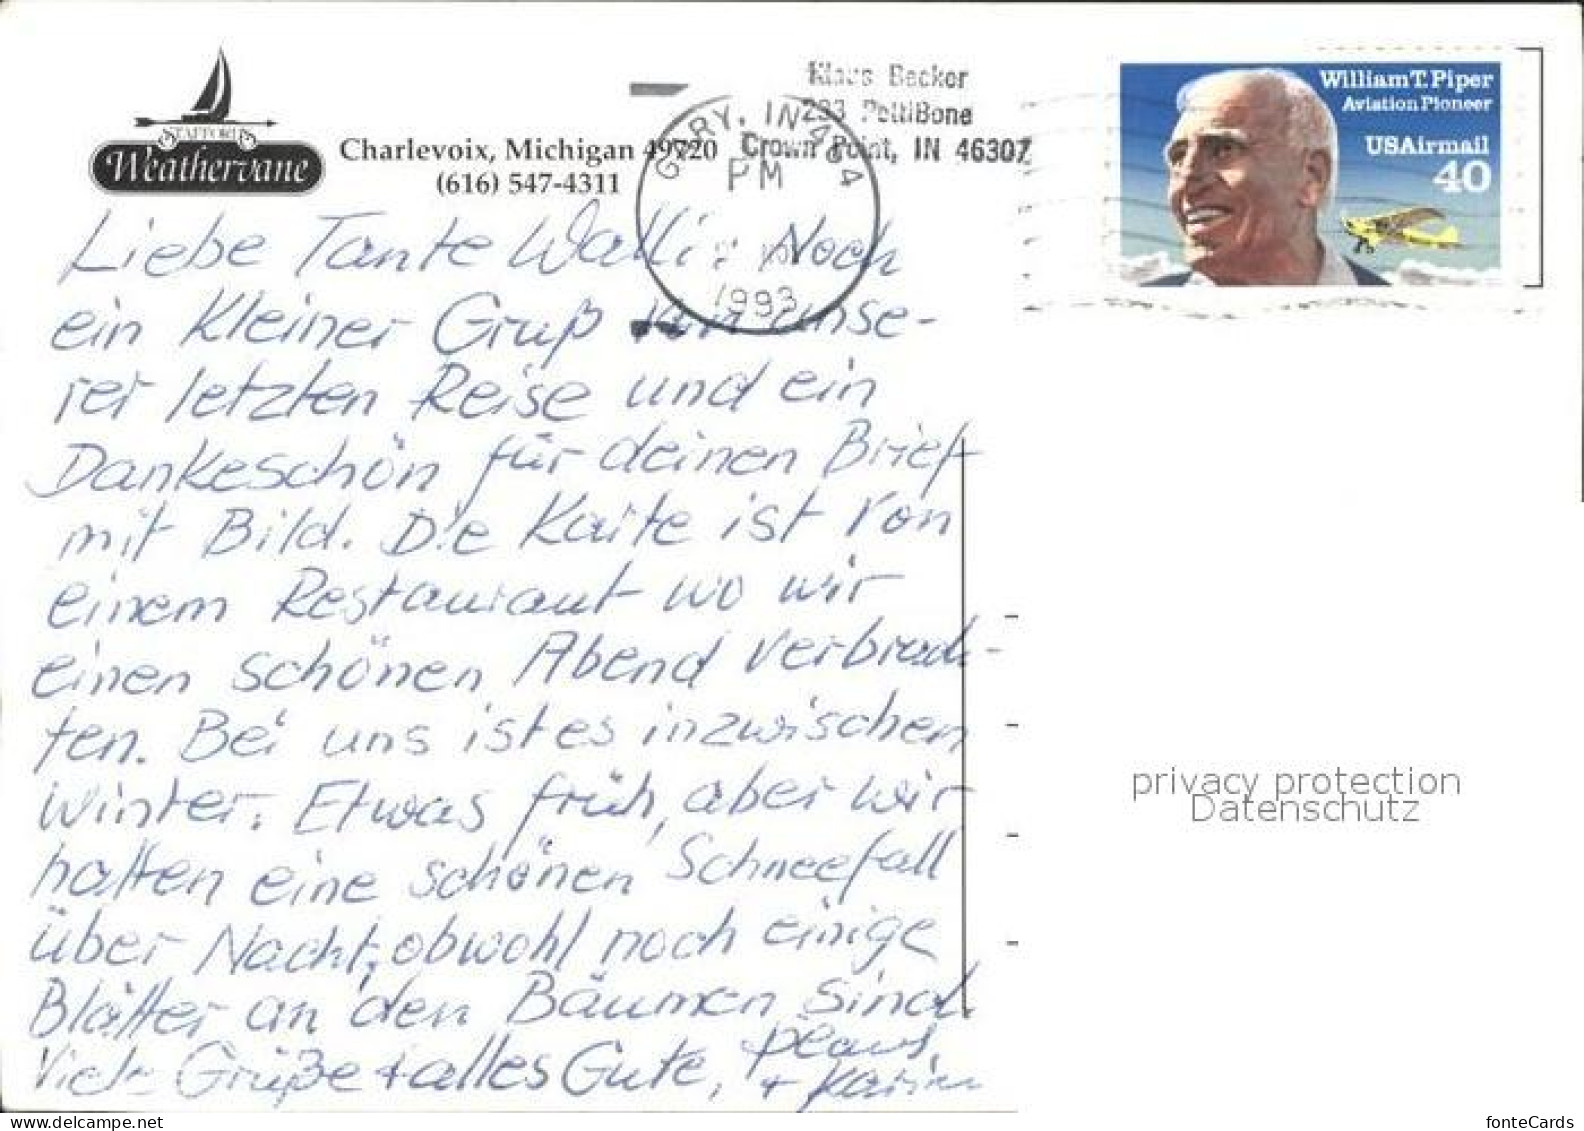 STAFFORD'S
Weathervane
Charlevoix, Michigan 49720
(616) 547-4311
Klaus Becker
293 PettiBone
Crown Point, IN 46307
GARY, IN 464
PM
1993
William T. Piper
Aviation Pioneer
USAirmail
40
Liebe Tante Walli! Noch
ein kleiner Gruß von unse-
rer letzten Reise und ein
Dankeschön für deinen Brief
mit Bild. Die Karte ist von
einem Restaurant wo wir
einen schönen Abend verbrach-
ten. Bei uns ist es inzwischen
Winter. Etwas früh, aber wir
hatten eine schönen Schneefall
über Nacht, obwohl noch einige
Blätter an den Bäumen sind.
Viele Grüße + alles Gute,
+ Karin
privacy protection
Datenschutz
fonteCards